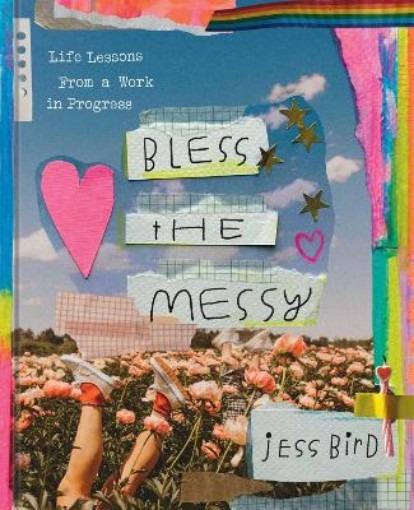 Life Lessons
From a Work
in Progress
BLESS
tHE
MESSY
jESS BirD